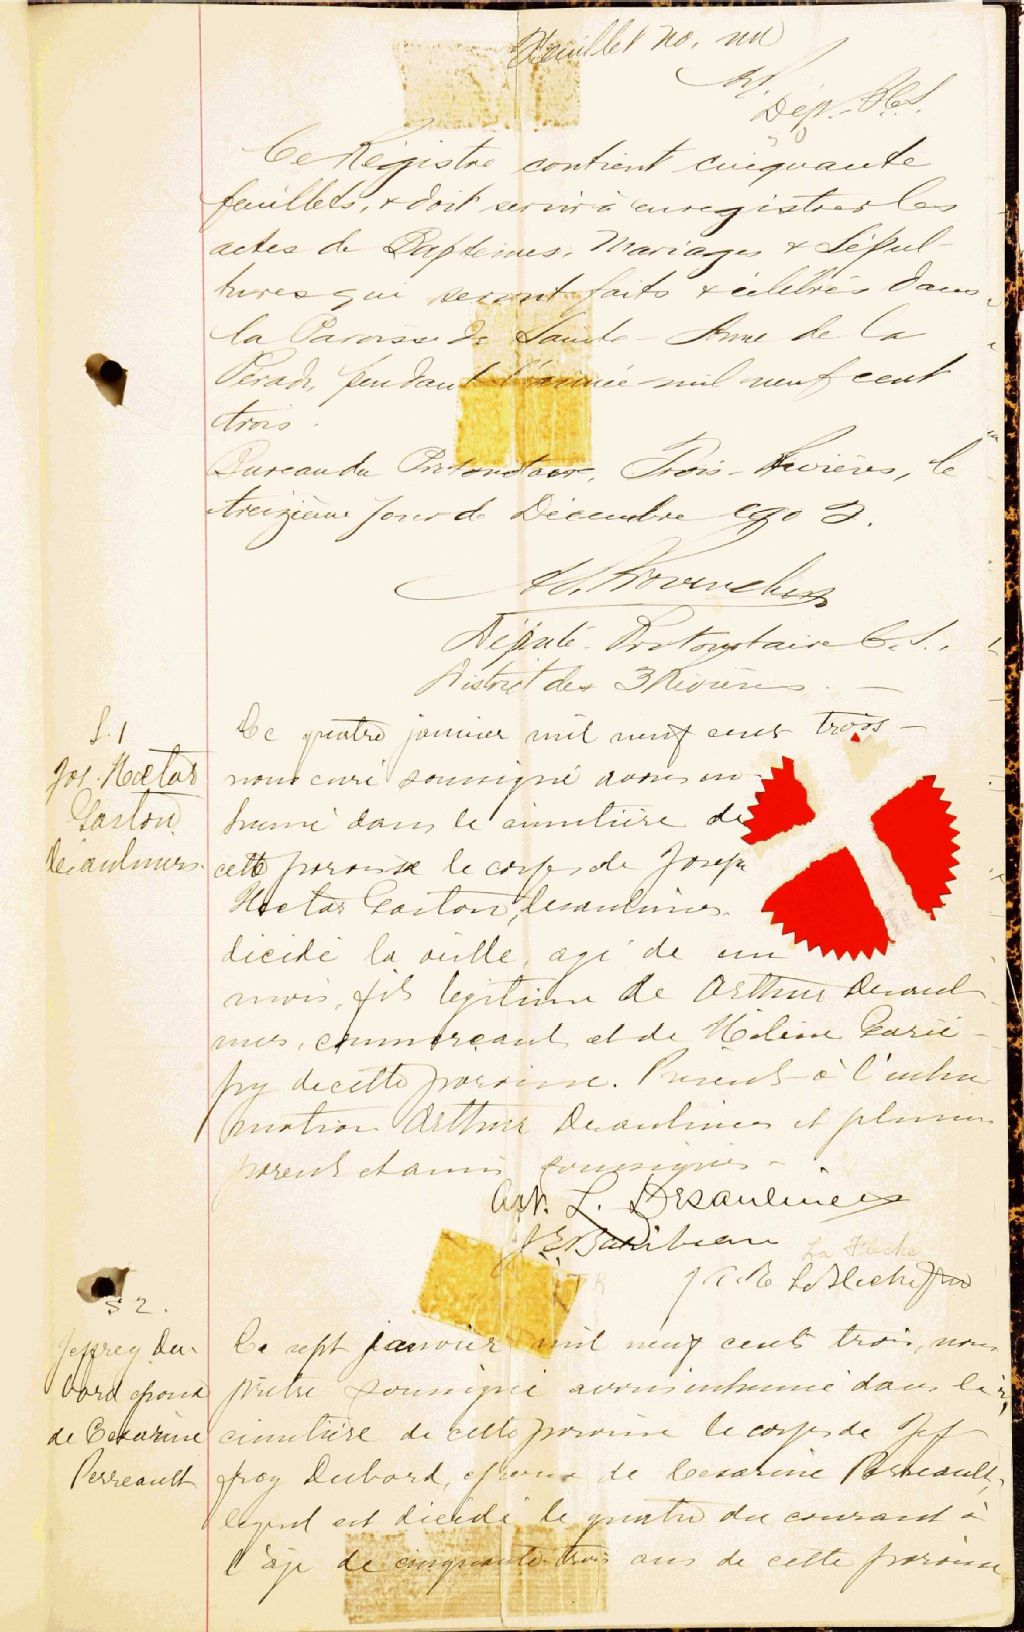 Feuillet no. un
Dép. P.C.S.
Ce Régistre contient cinquante
feuillets, & doit servir à enregistrer les
actes de Baptêmes, Mariages & Sépul-
tures qui seront faits & célébrés dans
la Paroisse de Sainte-Anne de la
Pérade, pendant l'année mil neuf cent
trois.
Bureau du Protonotaire, Trois-Rivières, le
treizième jour de Décembre 1902.
Député-Protonotaire C.S.,
District des 3 Rivières.
S. 1
Jos. Hector
Gaston
Désaulniers
Le quatre janvier mil neuf cent trois
nous curé soussigné avons in
humé dans le cimetière de
cette paroisse le corps de Joseph
Hector Gaston Desaulniers
décédé la veille, agé de un
mois, fils légitime de Arthur Desaul
niers, commerçant et de Hélène Garié-
py de cette paroisse. Présents à l'inhu
mation Arthur Desaulniers et plusieurs
parents et amis soussignés -
Art. L. Desaulniers
La Flèche
S 2.
Jeffrey Du-
bord époux
de Césarine
Perreault
Le sept janvier mil neuf cent trois, nous
prêtre soussigné avons inhumé dans le
cimetière de cette paroisse le corps de Jef
frey Dubord, époux de Césarine Perreault,
lequel est décédé le quatre du courant à
l'âge de cinquante-trois ans de cette paroisse